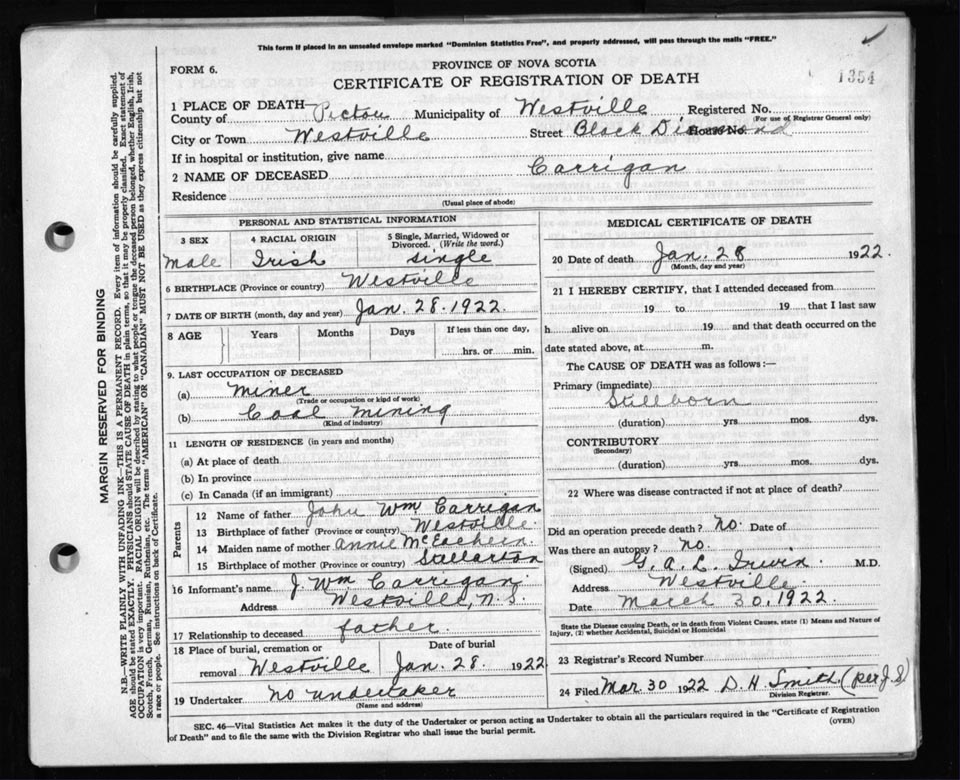 This form if placed in an unsealed envelope marked "Dominion Statistics Free", and properly addressed, will pass through the mails "FREE."
FORM 6.
PROVINCE OF NOVA SCOTIA
CERTIFICATE OF REGISTRATION OF DEATH
1354
1 PLACE OF DEATH
County of Pictou Municipality of Westville Registered No.
(For use of Registrar General only)
City or Town Westville Street Black Diamond House No.
If in hospital or institution, give name
2 NAME OF DECEASED Carrigan
Residence
(Usual place of abode)
PERSONAL AND STATISTICAL INFORMATION
3 SEX 4 RACIAL ORIGIN 5 Single, Married, Widowed or Divorced. (Write the word.)
Male Irish Single
6 BIRTHPLACE (Province or country) Westville
7 DATE OF BIRTH (month, day and year) Jan. 28. 1922.
8 AGE Years Months Days If less than one day,
hrs. or min.
9. LAST OCCUPATION OF DECEASED
(a) Miner
(Trade or occupation or kind of work)
(b) Coal Mining
(Kind of industry)
11 LENGTH OF RESIDENCE (in years and months)
(a) At place of death
(b) In province
(c) In Canada (if an immigrant)
Parents
12 Name of father John Wm Carrigan
13 Birthplace of father (Province or country) Westville.
14 Maiden name of mother Annie McEachern
15 Birthplace of mother (Province or country) Stellarton
16 Informant's name J. Wm Carrigan.
Address Westville, N.S.
17 Relationship to deceased father.
18 Place of burial, cremation or removal Westville Date of burial Jan. 28. 1922
19 Undertaker no undertaker
(Name and address)
MEDICAL CERTIFICATE OF DEATH
20 Date of death Jan. 28 1922.
(Month, day and year)
21 I HEREBY CERTIFY, that I attended deceased from
19 to 19 that I last saw
h alive on 19 and that death occurred on the
date stated above, at m.
The CAUSE OF DEATH was as follows:—
Primary (immediate)
Stillborn
(duration) yrs mos. dys.
CONTRIBUTORY
(Secondary)
(duration) yrs mos. dys.
22 Where was disease contracted if not at place of death?
Did an operation precede death? no. Date of
Was there an autopsy? no.
(Signed) G. A. L. Irwin. M.D.
Address Westville.
Date March 30. 1922.
State the Disease causing Death, or in death from Violent Causes, state (1) Means and Nature of
Injury, (2) whether Accidental, Suicidal or Homicidal
23 Registrar's Record Number
24 Filed Mar. 30 1922 D. H. Smith (per J.S)
Division Registrar.
SEC. 46—Vital Statistics Act makes it the duty of the Undertaker or person acting as Undertaker to obtain all the particulars required in the "Certificate of Registration
of Death" and to file the same with the Division Registrar who shall issue the burial permit.
(OVER)
MARGIN RESERVED FOR BINDING
N.B.—WRITE PLAINLY WITH UNFADING INK—THIS IS A PERMANENT RECORD. Every item of information should be carefully supplied.
AGE should be stated EXACTLY. PHYSICIANS should STATE CAUSE OF DEATH in plain terms, so that it may be properly classified. Exact statement of
OCCUPATION is very important. RACIAL ORIGIN will be described by stating to what people or tongue the deceased person belonged, whether English, Irish,
Scotch, French, German, Russian, Ruthenian, etc. The terms "AMERICAN" OR "CANADIAN" MUST NOT BE USED as they express citizenship but not
a race or people. See instructions on back of Certificate.